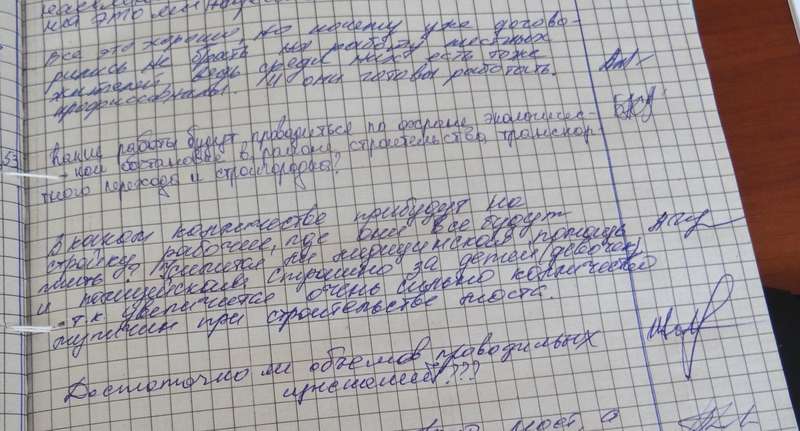 Все это хорошо, но почему уже догово-
рились не брать на работу местных
жителей ведь среди них есть тоже
профессионалы. И они готовы работать.
53 Какие работы будут проводиться по охране экологичес-
кой обстановки в районе строительства транспор-
тного перехода и стройгородка?
В каком количестве прибудут на
стройку рабочие, где они все будут
жить? и полицейская, страшно за детей (девочек)
-т.к увеличется очень сильно количество
мужчин при строительстве моста.
Достаточно ли объемов проводимых
изысканий???
мост, а